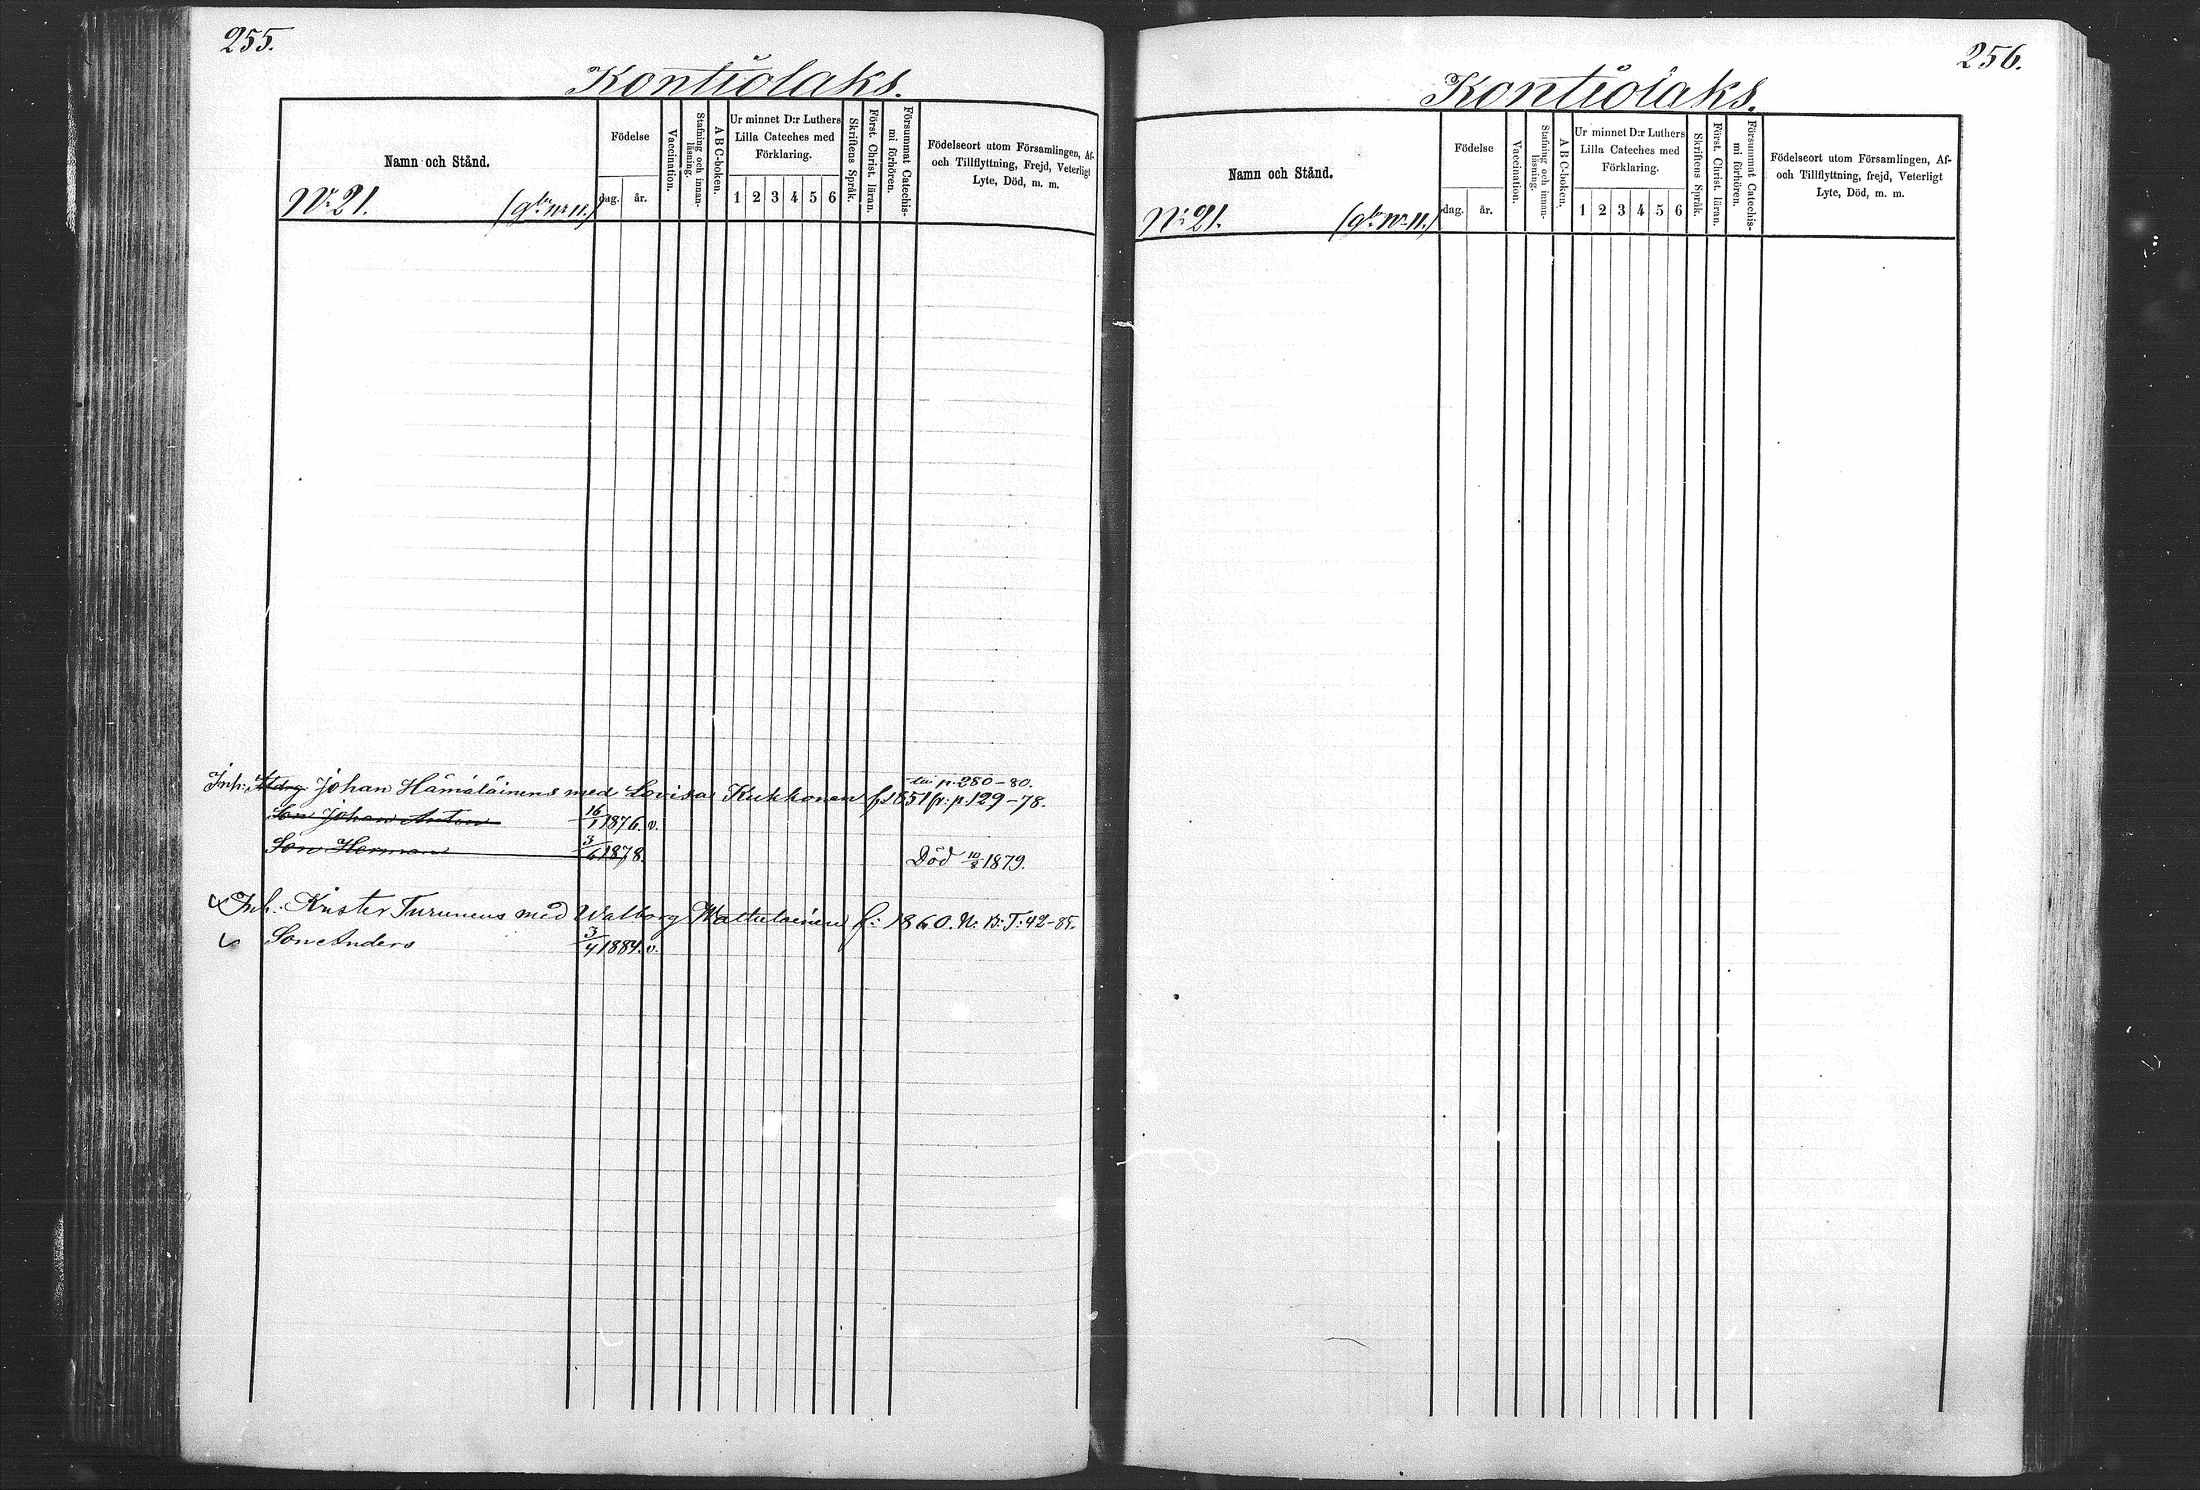 255.
Kontiolaks.
Namn och Stånd.
Födelse
dag. år.
Vaccination.
Stafning och innanläsning.
A B C-boken.
Ur minnet D:r Luthers Lilla Cateches med Förklaring.
1 2 3 4 5 6
Skriftens Språk.
Först. Christ. läran.
Försummat Catechismi förhören.
Födelseort utom Församlingen, Af-
och Tillflyttning, Frejd, Veterligt
Lyte, Död, m. m.
No 21. (gla No 11.)
till p. 280-80.
Inh: Johan Hämäläinens med Lovisa Kukkonen f. 1851 fr: p. 129-78.
Son Johan Anton 16/1 1876. v.
Son Herman 3/6 1878. Död 10/8 1879.
Inh: Krister Turunens med Walborg f: 1860. N. B: T: 42-85.
Son Anders 3/4 1884. v.
256.
Kontiolaks.
Namn och Stånd.
Födelse
dag. år.
Vaccination.
Stafning och innanläsning.
A B C-boken.
Ur minnet D:r Luthers Lilla Cateches med Förklaring.
1 2 3 4 5 6
Skriftens Språk.
Först. Christ. läran.
Försummat Catechismi förhören.
Födelseort utom Församlingen, Af-
och Tillflyttning, frejd, Veterligt
Lyte, Död, m. m.
No 21. (gla No 11.)